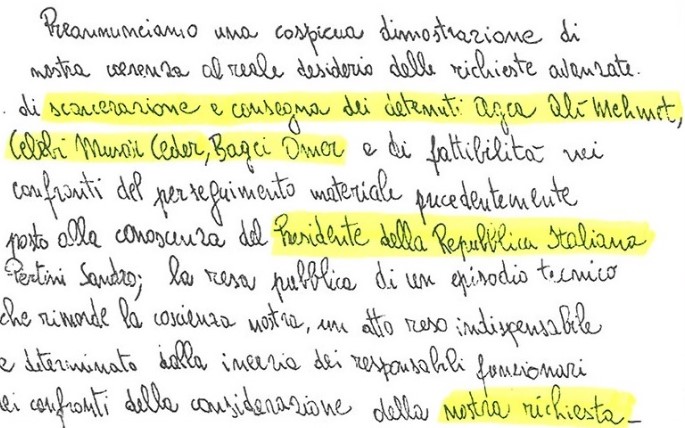 Preannunciamo una cospicua dimostrazione di
nostra coerenza al reale desiderio delle richieste avanzate.
di scarcerazione e consegna dei detenuti Agca Alì Mehmet,
Celebi Musár Ceder, Bagci Omer e di fattibilità nei
confronti del perseguimento materiale precedentemente
posto alla conoscenza del Presidente della Repubblica Italiana
Pertini Sandro; la resa pubblica di un episodio tecnico
che rimorde la coscienza nostra, un atto reso indispensabile
e determinato dalla inerzia dei responsabili funzionari
nei confronti della considerazione della nostra richiesta_